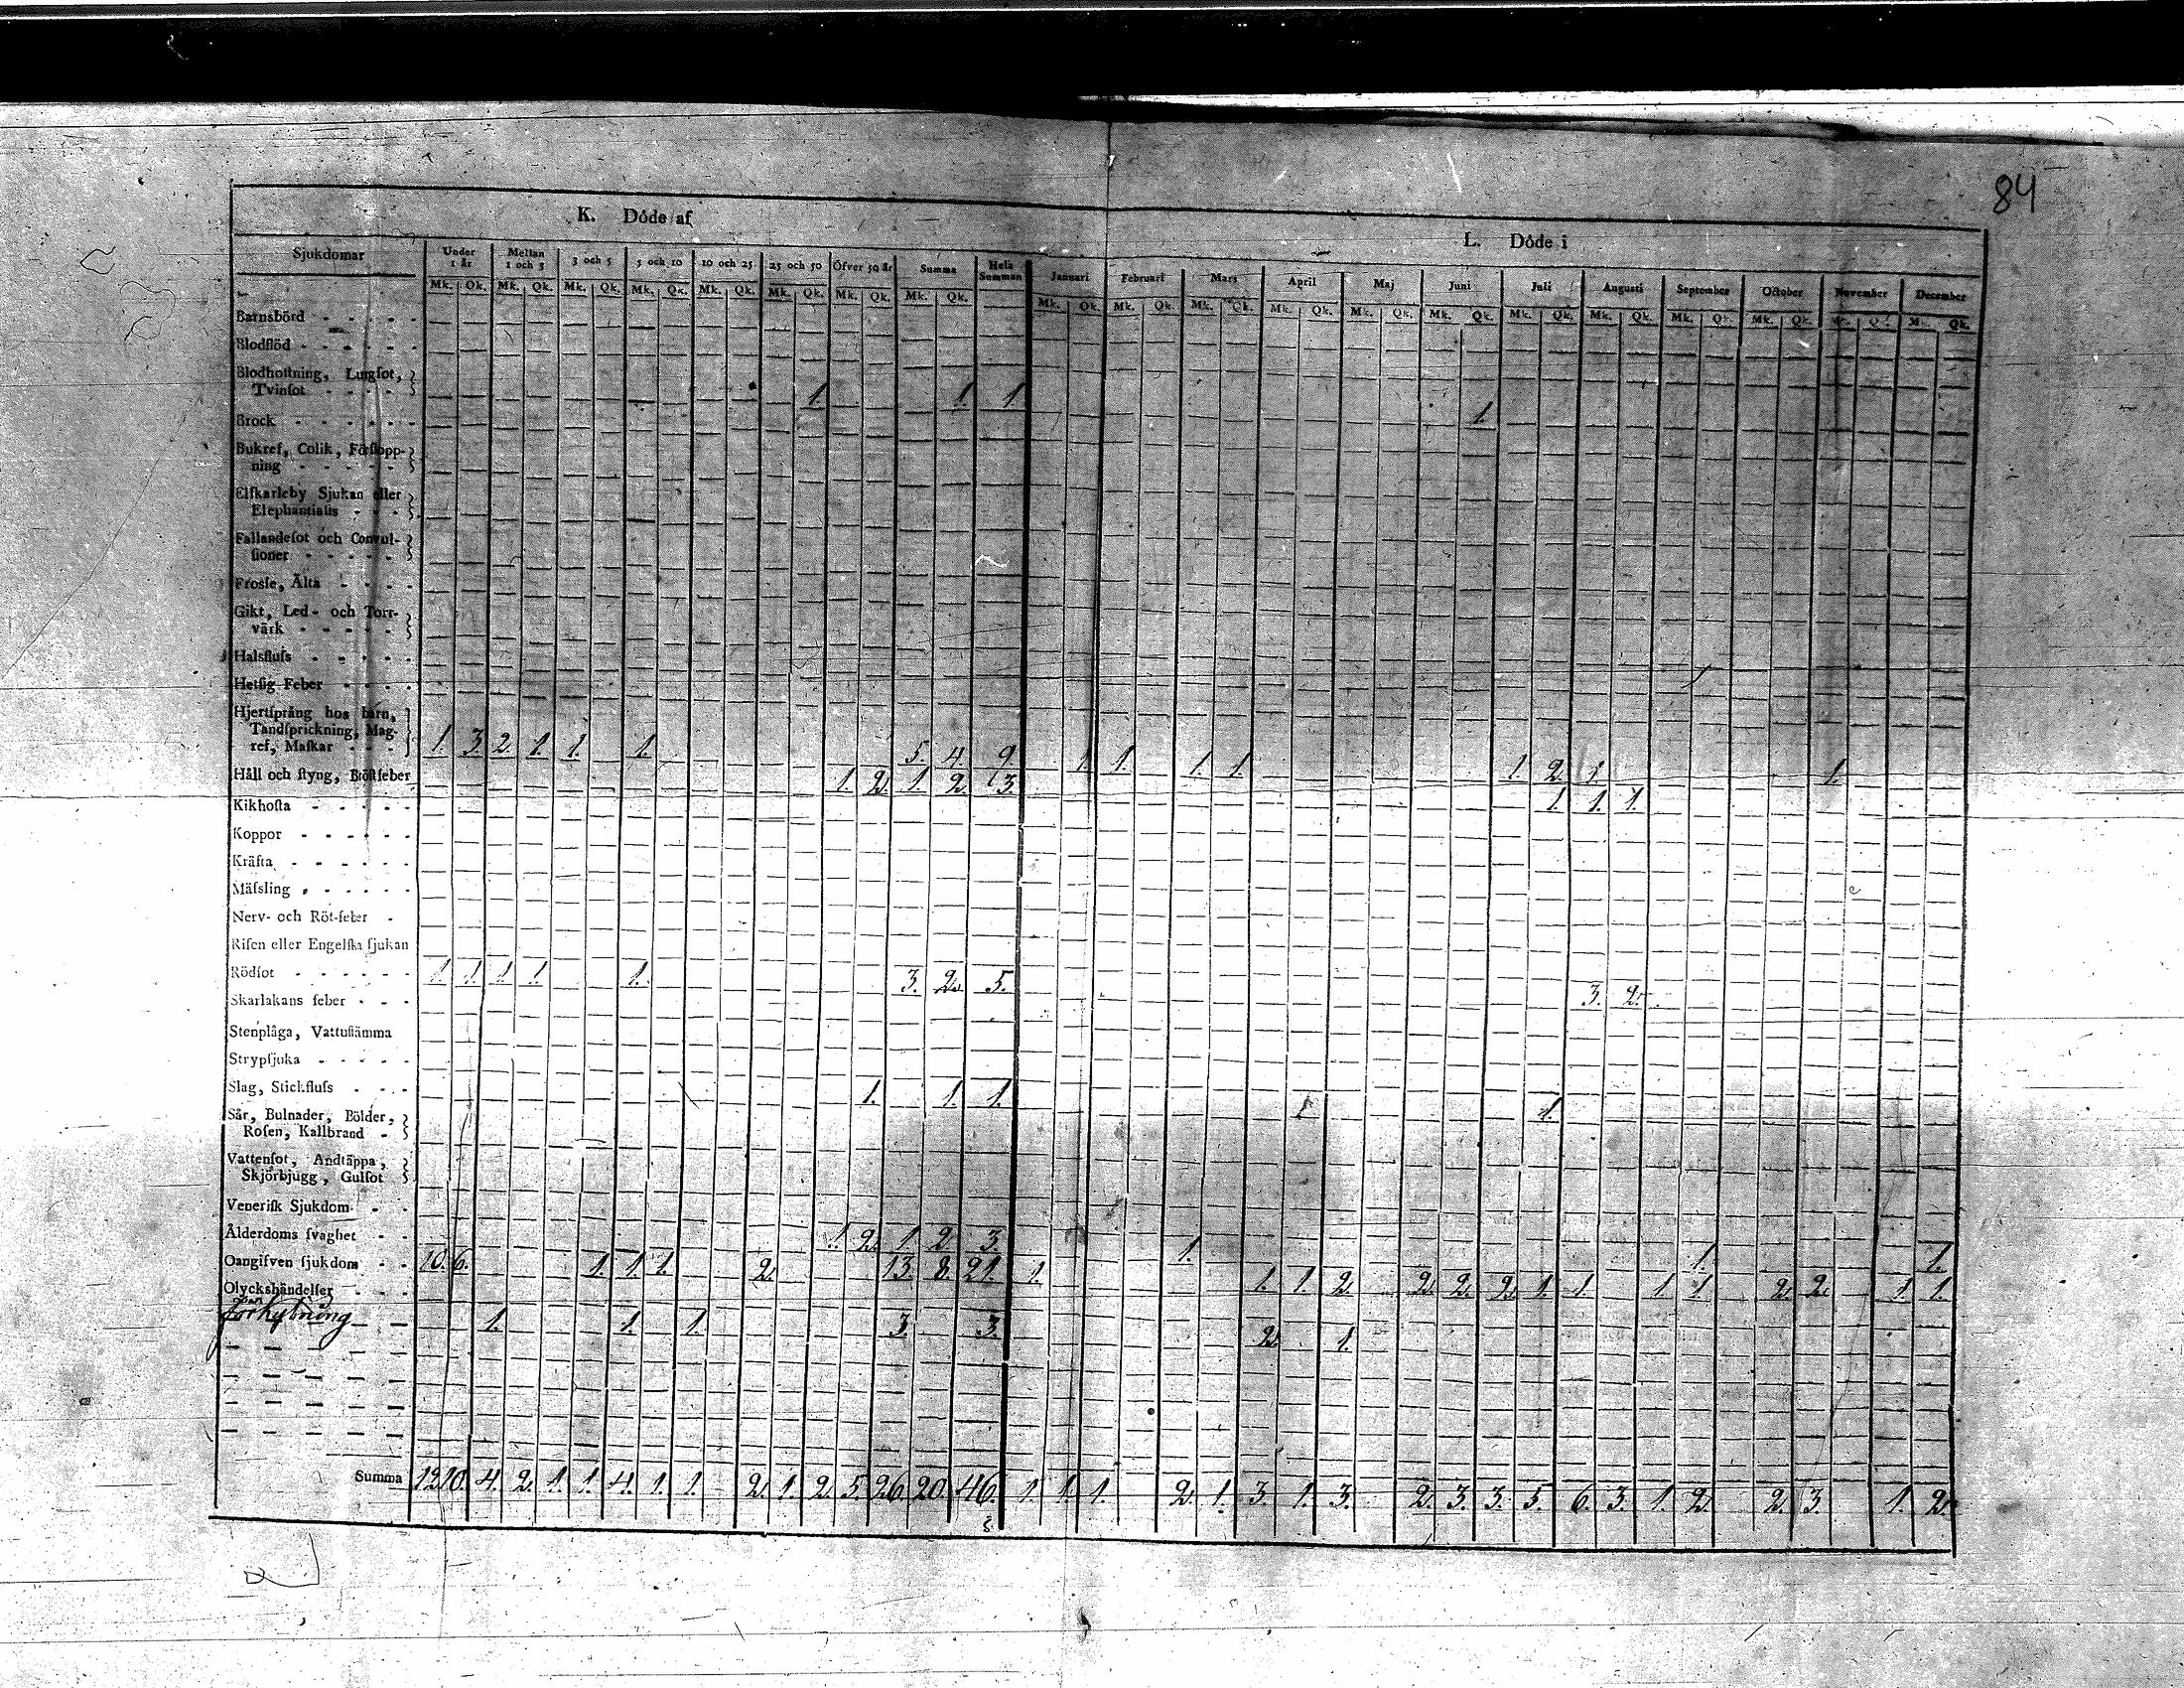 84
K. Döde af
L. Döde i
Sjukdomar Under 1 år Mellan 1 och 3 3 och 5 5 och 10 10 och 25 25 och 50 Öfver 50 år Summa Hela Summan Januari Februari Mars April Maj Juni Juli Augusti September October November December
Mk. Qk. Mk. Qk. Mk. Qk. Mk. Qk. Mk. Qk. Mk. Qk. Mk. Qk. Mk. Qk. Mk. Qk. Mk. Qk. Mk. Qk. Mk. Qk. Mk. Qk. Mk. Qk. Mk. Qk. Mk. Qk. Mk. Qk. Mk. Qk. Mk. Qk. Mk. Qk.
Barnsbörd - - - - -
Blodflöd - - - - - -
Blodhostning, Lungſot,
Tvinſot - - - - 1. 1. 1. 1.
Brock - - - - - -
Bukref, Colik, Förſtopp-
ning - - - - -
Elfkarleby Sjukan eller
Elephantiaſis - - -
Fallandeſot och Convul-
ſioner - - - - -
Frosſe, Älta - - - -
Gikt, Led- och Torr-
värk - - - - -
Halsfluſs - - - - -
Hetſig Feber - - - -
Hjertſprång hos barn,
Tandſprickning, Mag-
ref, Maſkar - - - 1. 3. 2. 1. 1. 1. 5. 4. 9. 1. 1. 1. 1. 1. 2. 1. 1.
Håll och ſtyng, Bröſtfeber 1. 2. 1. 2. 3. 1. 1. 1.
Kikhoſta - - - - -
Koppor - - - - - -
Kräfta - - - - - -
Mäſsling - - - - - -
Nerv- och Röt-feber -
Riſen eller Engelſka ſjukan
Rödſot - - - - - - 1. 1. 1. 1. 1. 3. 2. 5. 3. 2.
Skarlakans feber - - -
Stenplåga, Vattuſtämma
Strypſjuka - - - - -
Slag, Stickfluſs - - - 1. 1. 1. 1.
Sår, Bulnader, Bölder,
Roſen, Kallbrand -
Vattenſot, Andtäppa,
Skjörbjugg, Gulſot
Veneriſk Sjukdom - -
Ålderdoms ſvaghet - - 1. 2. 1. 2. 3. 1. 1. 1.
Oangifven ſjukdom - - 10. 6. 1. 1. 1. 2. 13. 8. 21. 1. 1. 1. 2. 2. 2. 2. 1. 1. 1. 1. 2. 2. 1. 1.
Olyckshändelſer - - -
1. 1. 1. 3. 3. 2. 1.
Summa 12. 10. 4. 2. 1. 1. 4. 1. 1. 2. 1. 2. 5. 26. 20. 46. 1. 1. 1. 2. 1. 3. 1. 3. 2. 3. 3. 5. 6. 3. 1. 2. 2. 3. 1. 2.